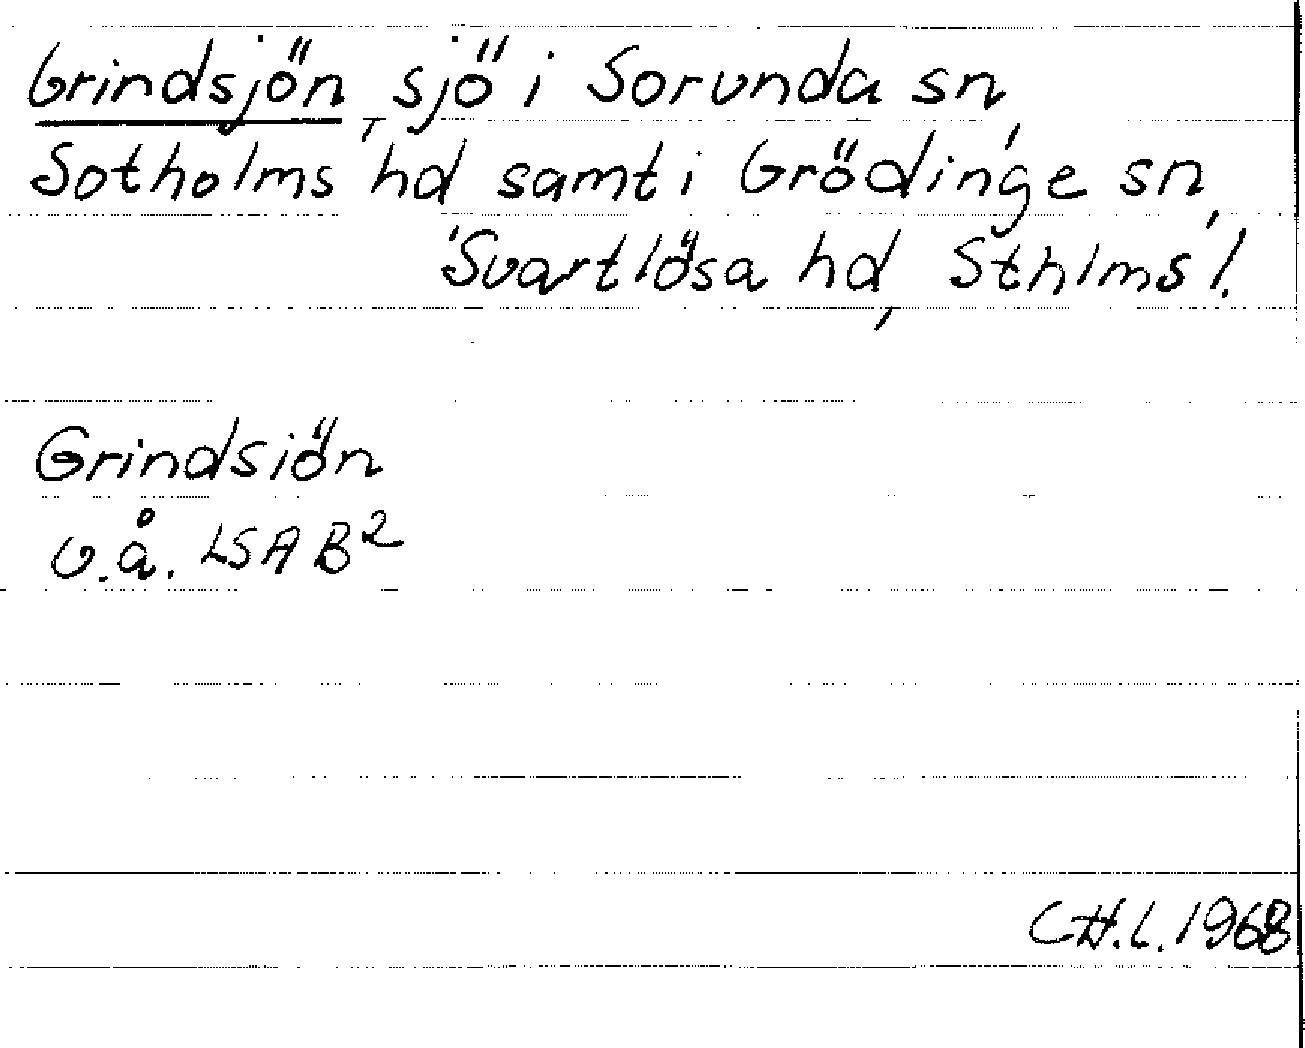 Grindsjön, sjö i Sorunda sn,
Sotholms hd samt i Grödinge sn,
Svartlösa hd, Sthlms l.
Grindsiön
u.å. LSA B²
CH.L. 1968